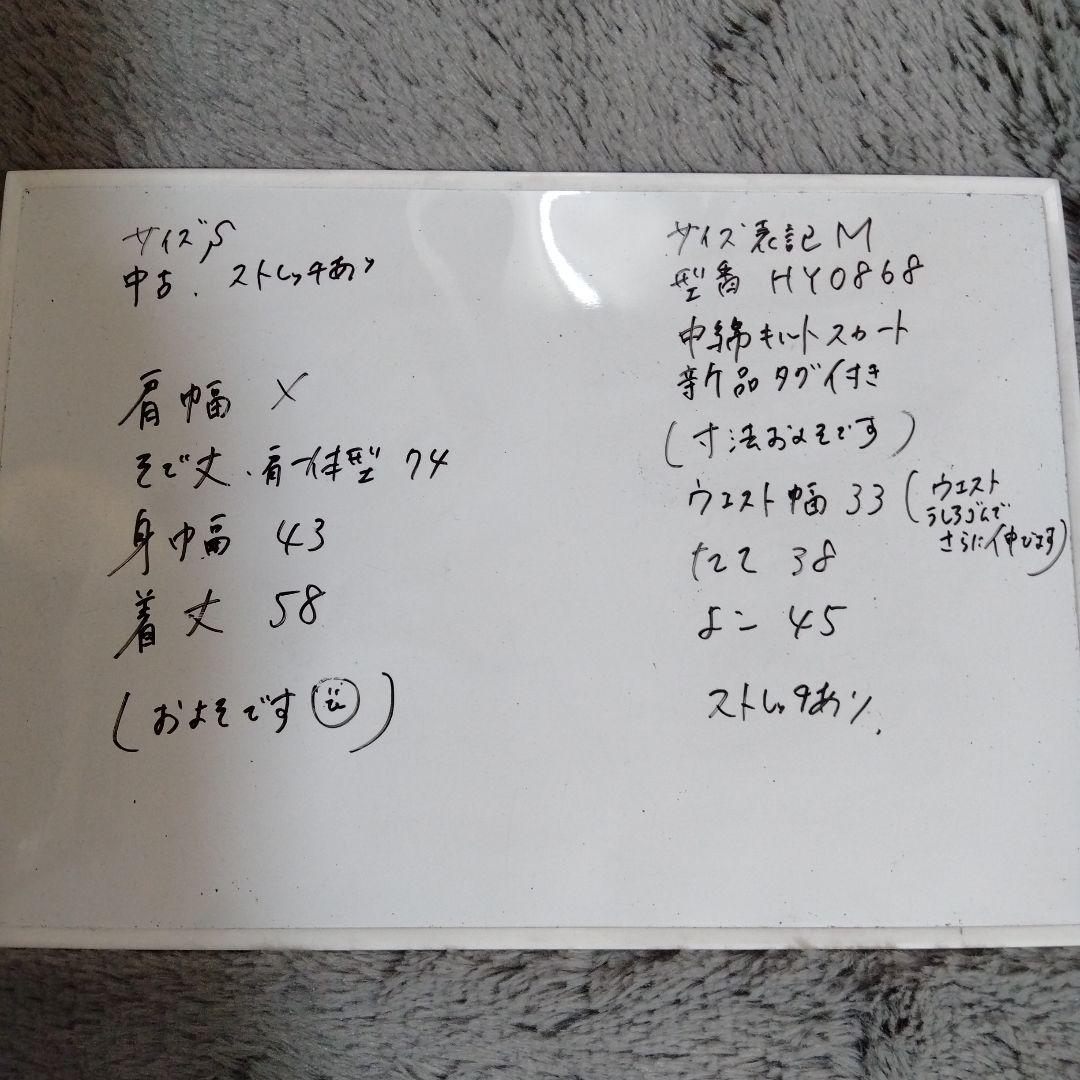 サイズS
中古. ストレッチあり
肩幅 ×
そで丈.肩一体型 74
身巾幅 43
着丈 58
(およそです)
サイズ表記M
型番 HY0868
中綿キルトスカート
新品タグ付き
(寸法およそです)
ウエスト幅 33 (ウエスト
うしろゴムで
さらに伸びます)
たて 38
よこ 45
ストレッチあり.